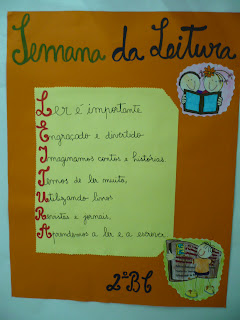 Semana da Leitura
Ler é importante
Engraçado e divertido
Imaginamos contos e histórias.
Temos de ler muito,
Utilizando livros
Revistas e jornais,
Aprendemos a ler e a escrever
2ºBC